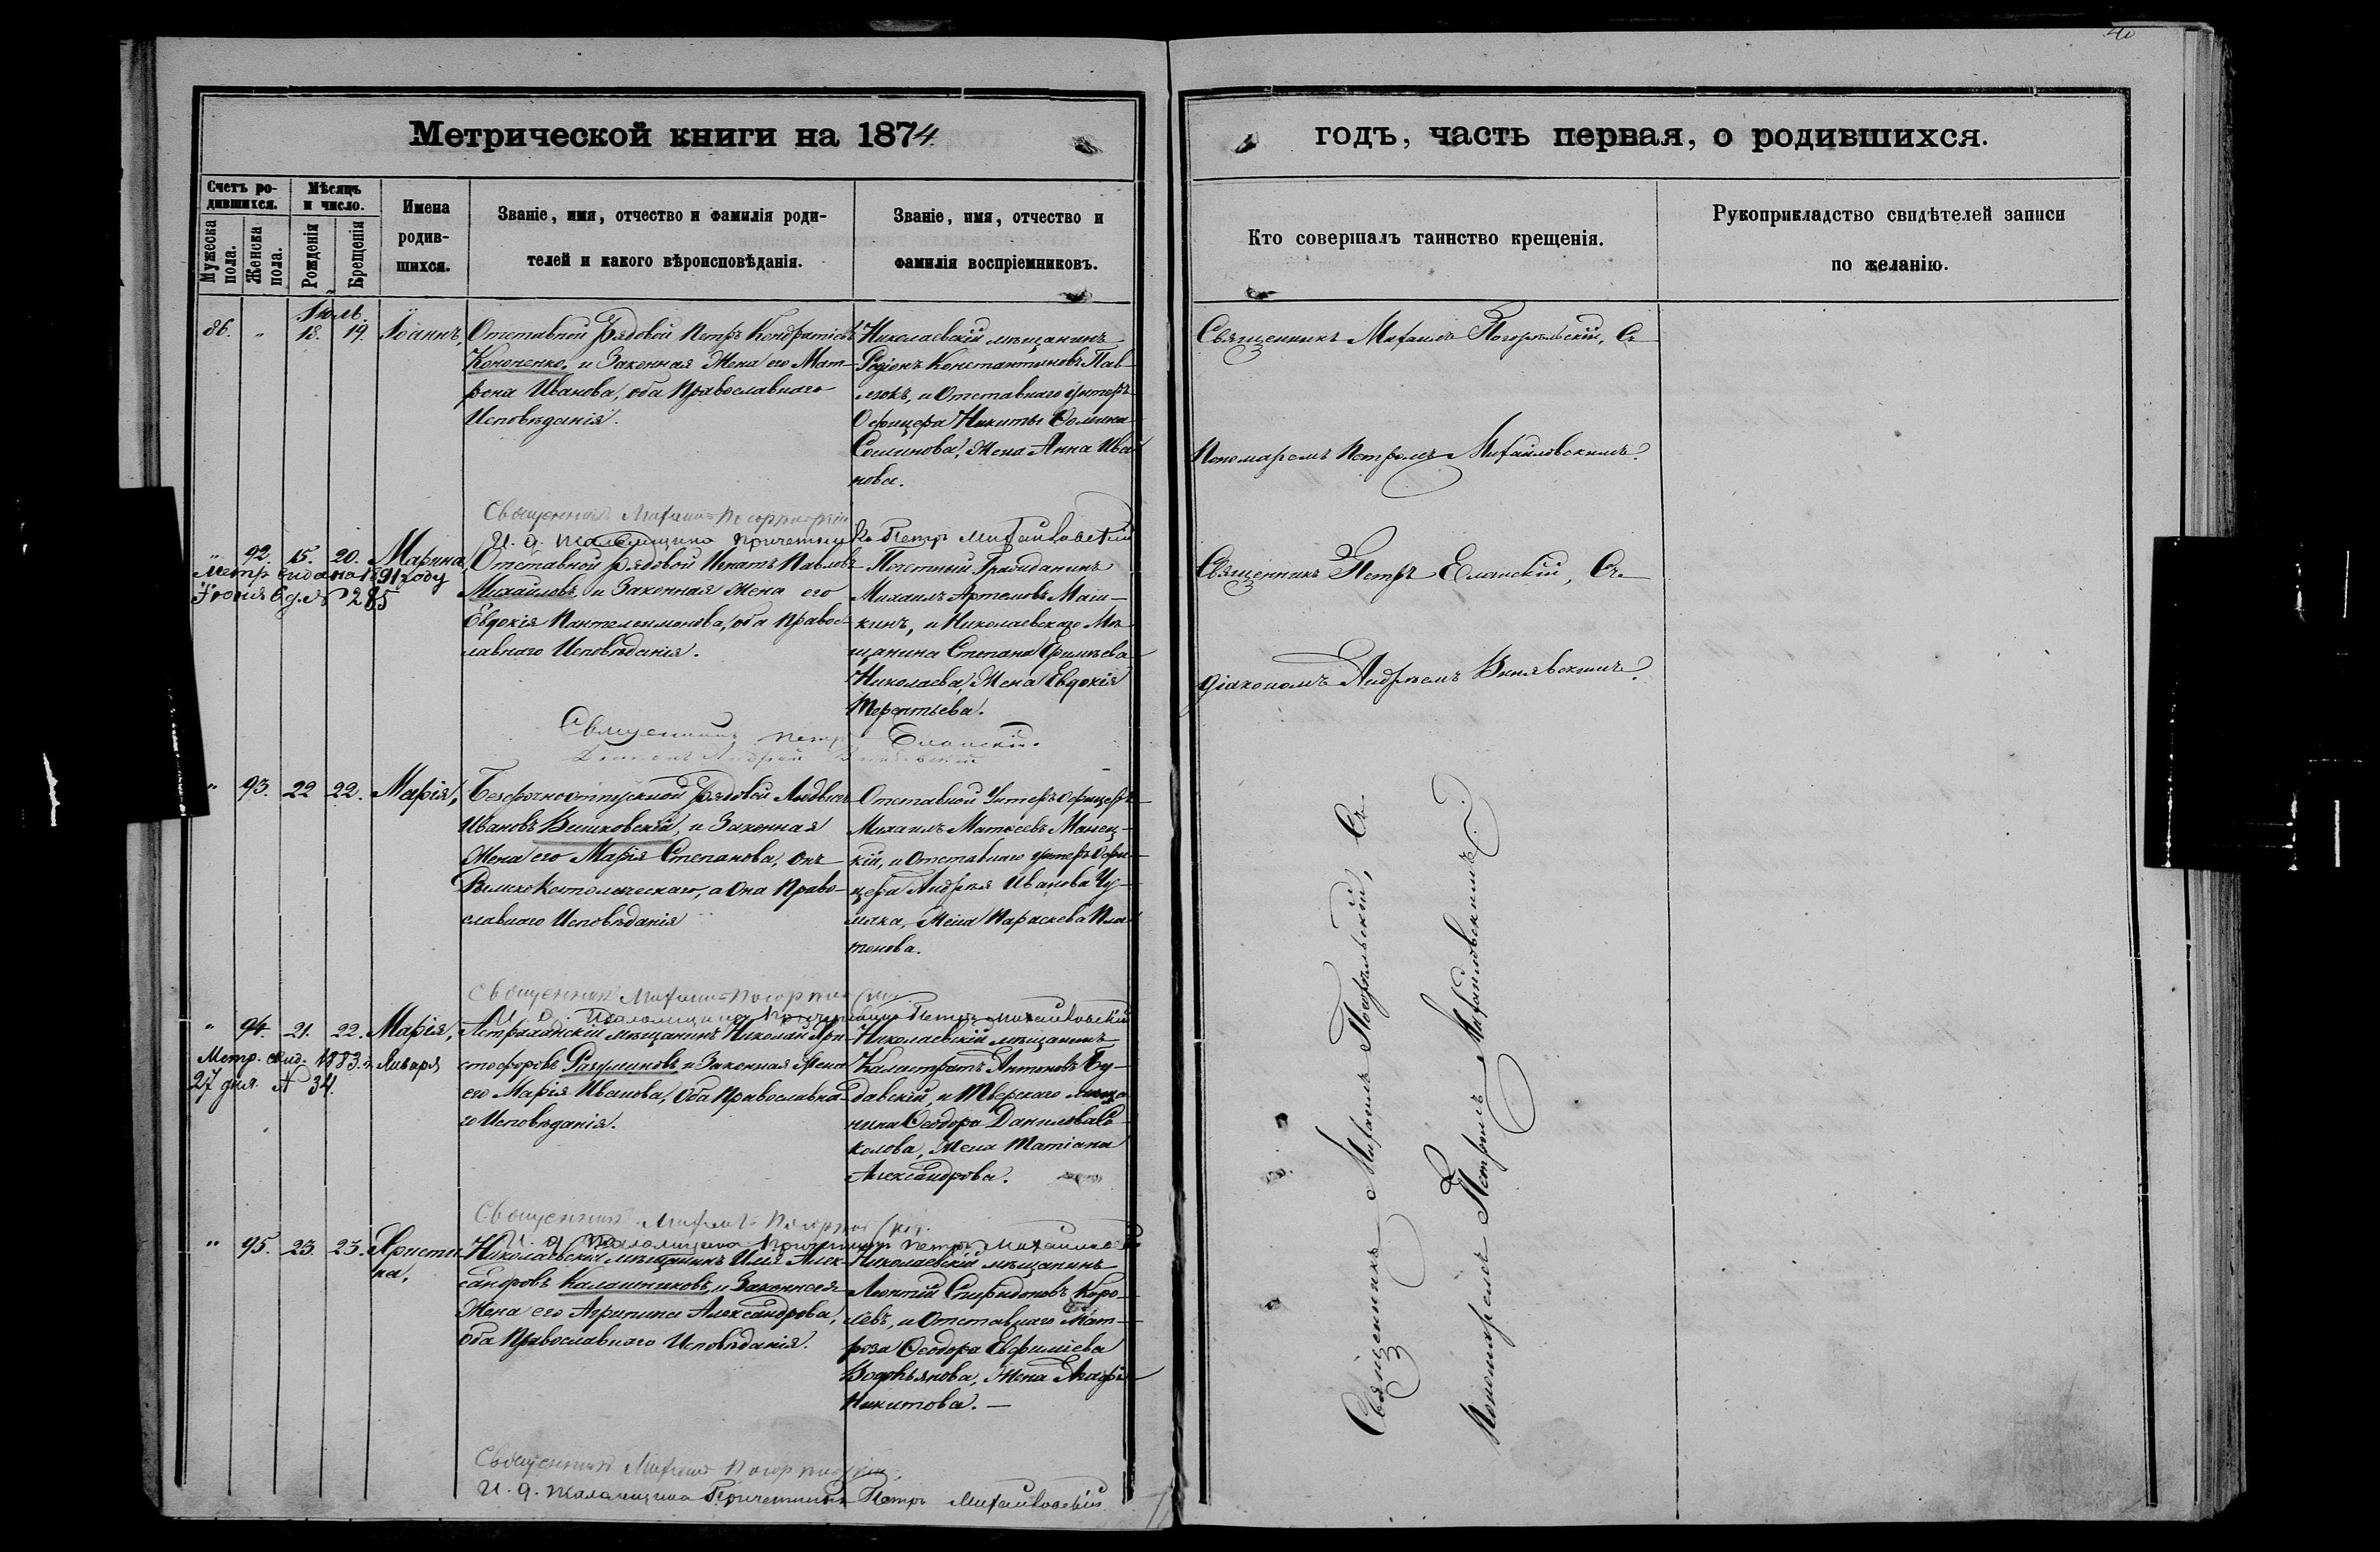 40
Метрической книги на 1874
годъ, часть первая, о родившихся.
Счетъ ро-
дившихся.
Мужеска пола.
Женска пола.
Мѣсяцъ
и число.
Рожденія
Крещенія
Имена
родив-
шихся.
Званіе, имя, отчество и фамилія роди-
телей и какого вѣроисповѣданія.
Званіе, имя, отчество и
фамилія воспріемниковъ.
Кто совершалъ таинство крещенія.
Рукоприкладство свидѣтелей записи
по желанію.
Іюль.
86. " 18. 19. Іоаннъ,
Отставной Рядовой Петръ Кондратіевъ
Кононенко, и Законная Жена его Мат-
рона Иванова, оба Православнаго
Исповѣданія.
Николаевскій мѣщанинъ
Родіонъ Константиновъ Пав-
и Отставнаго Унтеръ
Офицера Никиты
Жена Анна Ива
нова.
Священникъ Михаилъ Погорѣльскій, Съ
Пономаремъ Петромъ Михайловскимъ.
Священникъ Михаилъ
И. д. Псаломщика Причетникъ Петръ Михайловскій
" 92. 15. 20. Марина,
Метр вида на 1891 году
№ 285
Отставной Рядовой Игнатъ Павловъ
Михайловъ, и Законная Жена его
Евдокія Пантелеимонова, оба Правос-
лавнаго Исповѣданія.
Почетный Гражданинъ
Михаилъ Артемовъ Маш-
кинъ, и Николаевскаго Мѣ
щанина Степана
Николаева, Жена Евдокія
Терентьева.
Священникъ Петръ Еланскій, Съ
Діакономъ Андреемъ
Священникъ Петръ Еланскій.
Діаконъ Андрей
" 93. 22 22. Марія,
Безсрочноотпускной Рядовой Людвигъ
Ивановъ Вишковскій, и Законная
Жена его Марія Степанова, онъ
РимскоКатолическаго, а Она Право-
славнаго Исповѣданія
Отставной Унтеръ офицеръ
Михаилъ Матвеевъ Манец-
кій, и Отставнаго Унтеръ Офи-
цера Андрея Иванова Чу-
мака, Жена Параскева Пла
тонова.
Священникъ Михаилъ
И. д. Псаломщика Причетникъ Петръ Михайловскій
" 94. 21. 22. Марія,
Метр. свид. 1883. г. Января
27 дня. № 34.
Астраханскій мѣщанинъ Николай Хри-
стофоровъ Разумновъ и Законная Жена
его Марія Иванова, Оба Православна-
го Исповѣданія.
Николаевскій мѣщанинъ
Калистратъ Антоновъ Бу-
давскій, и Тверскаго мѣща
нина Ѳеодора Данилова Со
колова, Жена Татіана
Александрова.
Священникъ Михаилъ
И. д. Псаломщика Причетникъ Петръ Михайловскій
" 95. 23. 23. Христи-
на,
Николаевскій мѣщанинъ Илья Алек-
сандровъ Калашниковъ, и Законная
Жена его Агрипина Александрова,
оба Православнаго Исповѣданія.
Николаевскій мѣщанинъ
Леонтій Спиридоновъ Коро-
левъ, и Отставнаго Мат-
роза Ѳеодора Евфиміева
Жена Агафія
Никитова.
Священникъ Михаилъ Погорѣльскій, Съ
Пономаремъ Петромъ Михайловскимъ.
Священникъ Михаилъ
И. д. Псаломщика Причетникъ Петръ Михайловскій